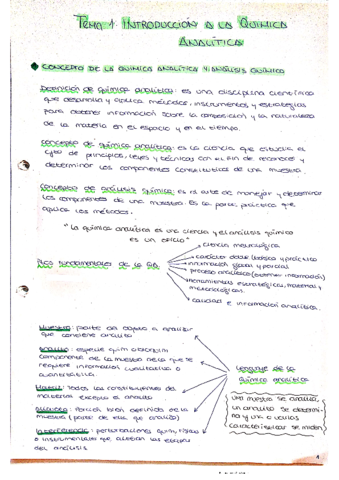 TEMA 1. INTRODUCCIÓN A LA QUÍMICA
ANALÍTICA
CONCEPTO DE LA QUÍMICA ANALÍTICA Y ANÁLISIS QUÍMICO
Definición de química analítica: es una disciplina científica
que desarrolla y aplica métodos, instrumentos y estrategias
para obtener información sobre la composición y la naturaleza
de la materia en el espacio y en el tiempo.
Concepto de química analítica: es la ciencia que estudia el
de principios, leyes y técnicas con el fin de conocer y
determinar los componentes constitutivos de una muestra.
Concepto de análisis químico: es el arte de manejar y determinar
los componentes de una muestra. Es la parte práctica que
aplica los métodos.
"La química analítica es una ciencia y el análisis químico
es un oficio"
Ciencia metrológica
carácter doble: teórico y práctico
información global y parcial
proceso analítico (obtener información)
herramientas estratégicas, material y
metodológicas.
calidad e información analítica.
fundamentales de la QA
Muestra: parte del objeto a analizar
que contiene analito
Analito: especie quím
componente de la muestra sobre la que se
requiere información cualitativa o
cuantitativa.
Matriz: todos los constituyentes del
material excepto el analito
Porción bien definida de la
muestra (parte de ella que analizo)
Interferencia: perturbaciones quím, físicas
o instrumentales que alteran las etapas
del análisis
Lenguaje de la
química analítica
Una muestra se analiza,
un analito se determi-
na y una o varias
características se miden
1